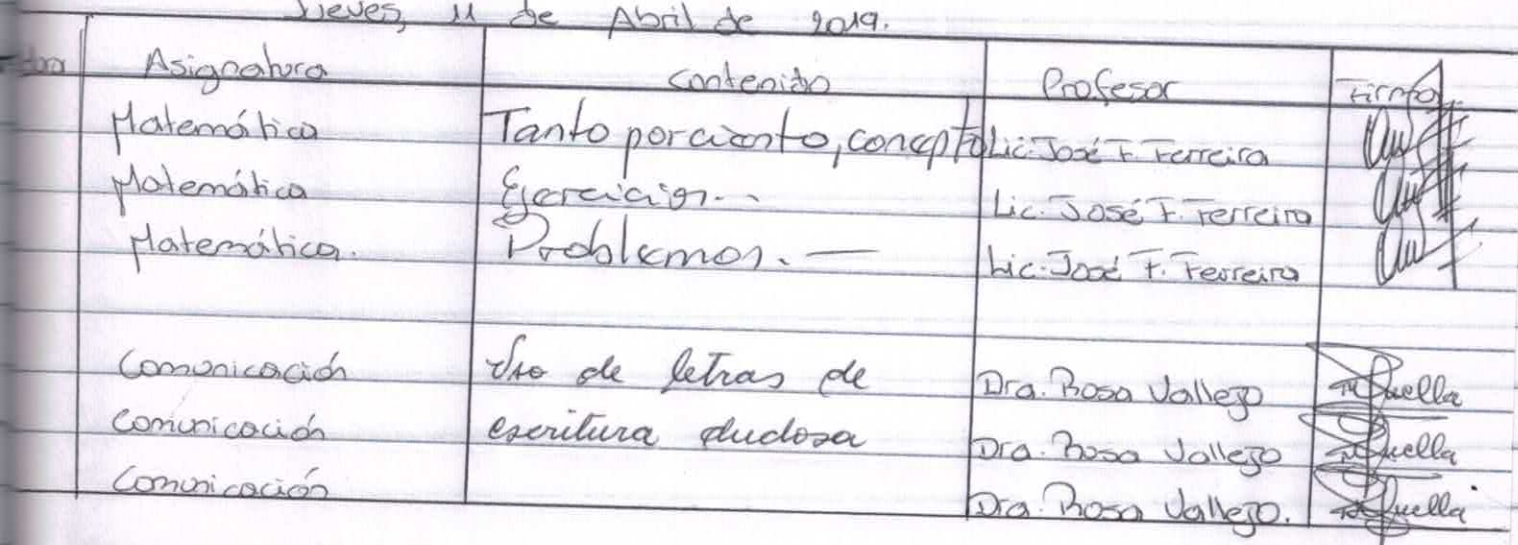 Jueves, 11 de Abril de 2019.
Asignatura Contenido Profesor Firma
Matemática Tanto por ciento, concepto Lic. José F. Ferreira
Matemática Ejercicios.-- Lic. José F. Ferreira
Matemática. Problemas. — Lic. José F. Ferreira
Comunicación Uso de letras de Dra. Rosa Vallejo
Comunicación escritura dudosa Dra. Rosa Vallejo
Comunicación Dra. Rosa Vallejo.